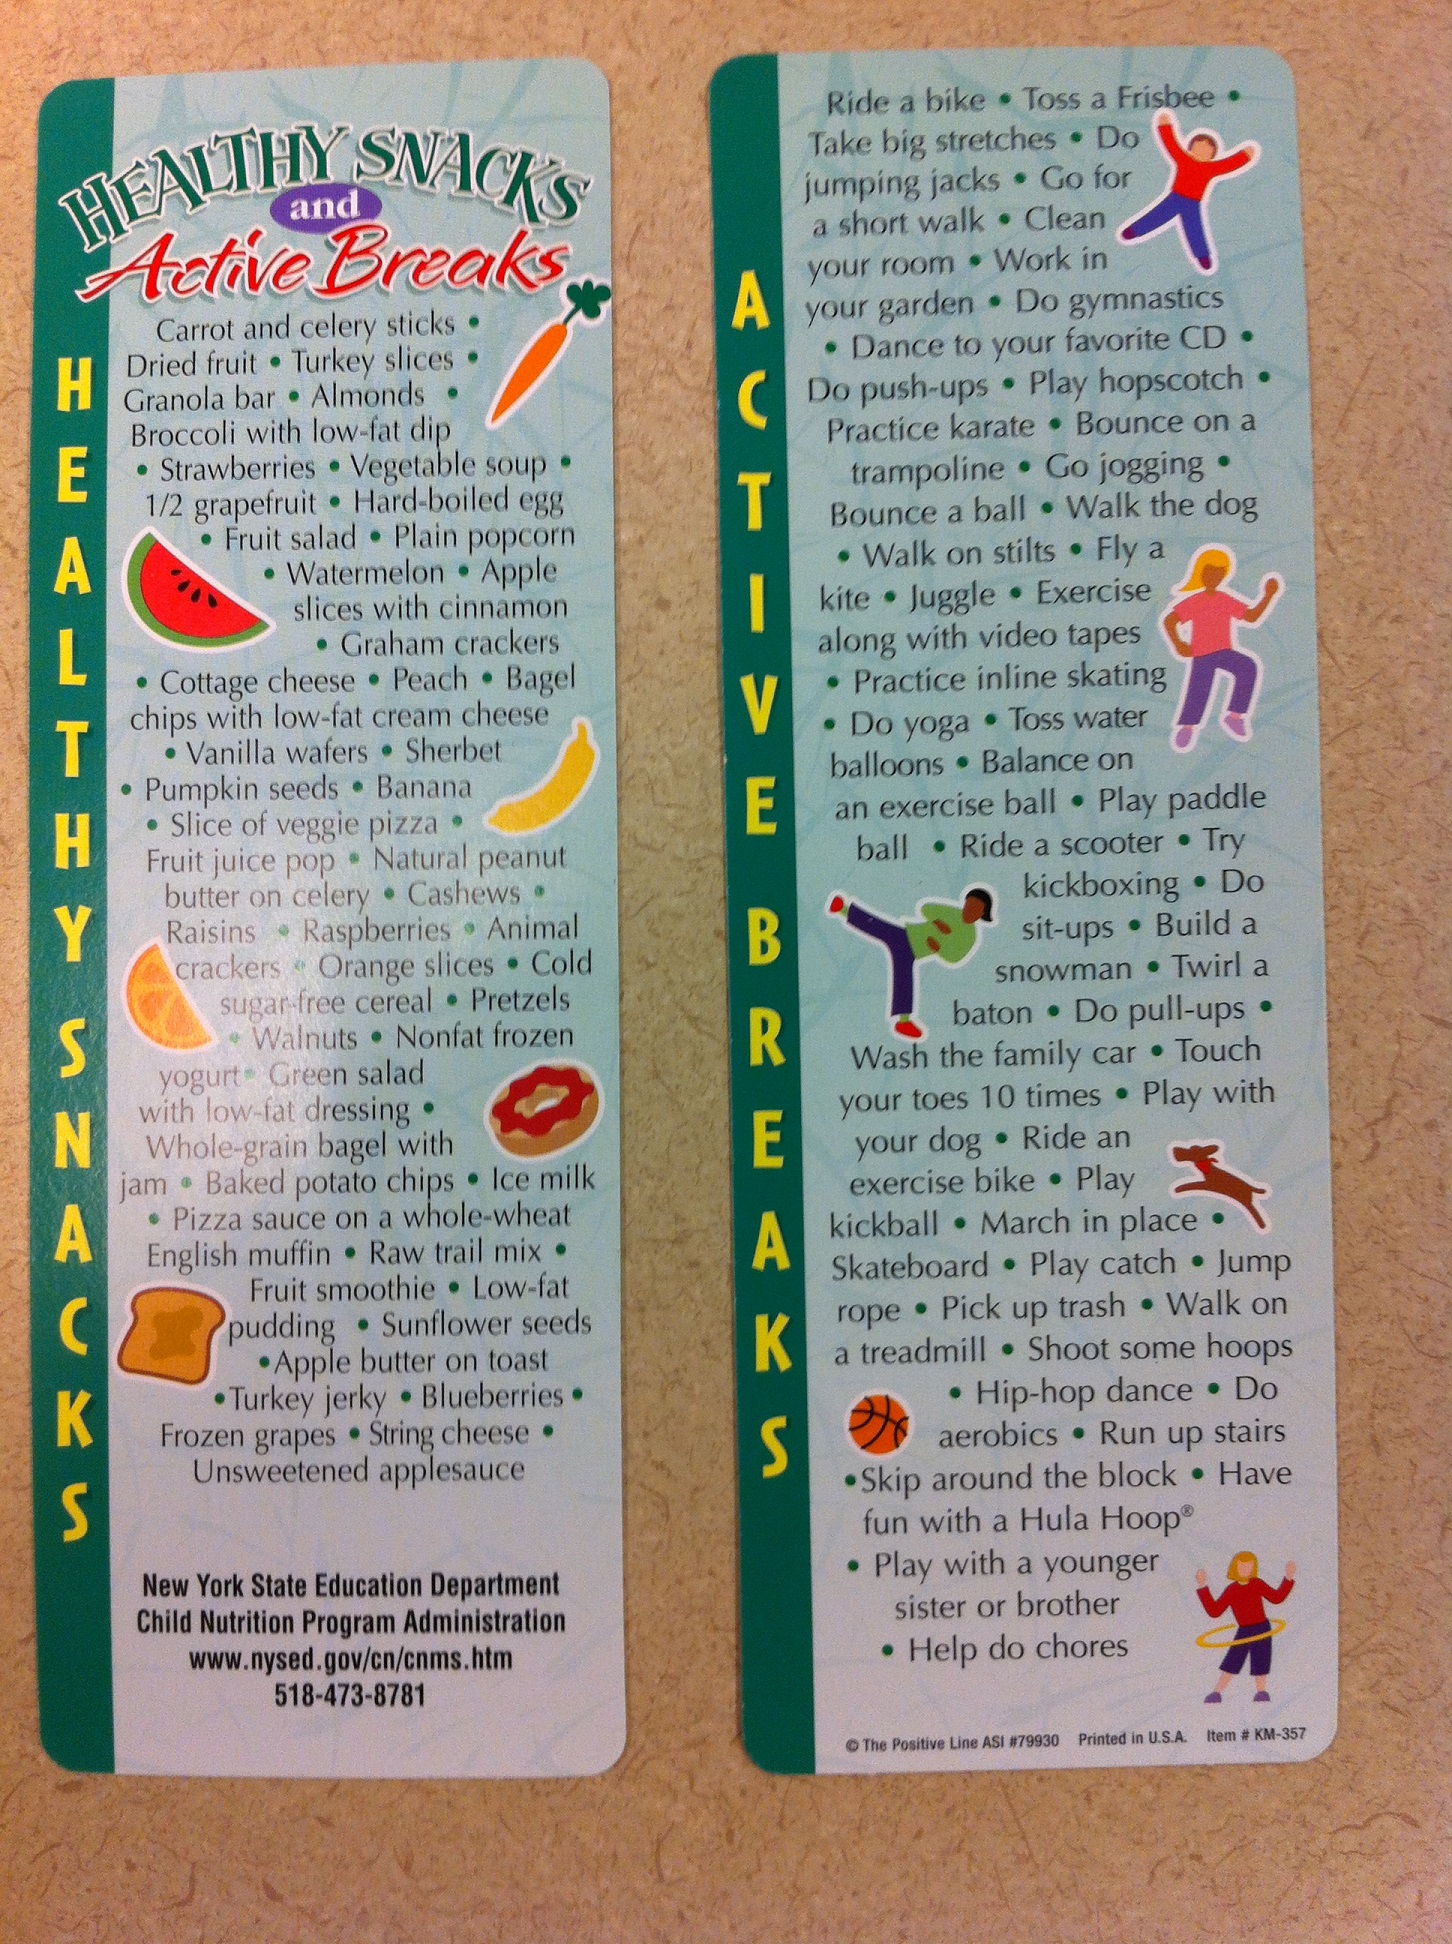 HEALTHY SNACKS
and
Active Breaks
HEALTHY SNACKS
Carrot and celery sticks •
Dried fruit • Turkey slices •
Granola bar • Almonds •
Broccoli with low-fat dip
• Strawberries • Vegetable soup •
1/2 grapefruit • Hard-boiled egg
• Fruit salad • Plain popcorn
• Watermelon • Apple
slices with cinnamon
• Graham crackers
• Cottage cheese • Peach • Bagel
chips with low-fat cream cheese
• Vanilla wafers • Sherbet
• Pumpkin seeds • Banana
• Slice of veggie pizza •
Fruit juice pop • Natural peanut
butter on celery • Cashews •
Raisins • Raspberries • Animal
crackers • Orange slices • Cold
sugar-free cereal • Pretzels
• Walnuts • Nonfat frozen
yogurt • Green salad
with low-fat dressing •
Whole-grain bagel with
jam • Baked potato chips • Ice milk
• Pizza sauce on a whole-wheat
English muffin • Raw trail mix •
Fruit smoothie • Low-fat
pudding • Sunflower seeds
• Apple butter on toast
• Turkey jerky • Blueberries •
Frozen grapes • String cheese •
Unsweetened applesauce
New York State Education Department
Child Nutrition Program Administration
www.nysed.gov/cn/cnms.htm
518-473-8781
ACTIVE BREAKS
Ride a bike • Toss a Frisbee •
Take big stretches • Do
jumping jacks • Go for
a short walk • Clean
your room • Work in
your garden • Do gymnastics
• Dance to your favorite CD •
Do push-ups • Play hopscotch •
Practice karate • Bounce on a
trampoline • Go jogging •
Bounce a ball • Walk the dog
• Walk on stilts • Fly a
kite • Juggle • Exercise
along with video tapes
• Practice inline skating
• Do yoga • Toss water
balloons • Balance on
an exercise ball • Play paddle
ball • Ride a scooter • Try
kickboxing • Do
sit-ups • Build a
snowman • Twirl a
baton • Do pull-ups •
Wash the family car • Touch
your toes 10 times • Play with
your dog • Ride an
exercise bike • Play
kickball • March in place •
Skateboard • Play catch • Jump
rope • Pick up trash • Walk on
a treadmill • Shoot some hoops
• Hip-hop dance • Do
aerobics • Run up stairs
• Skip around the block • Have
fun with a Hula Hoop®
• Play with a younger
sister or brother
• Help do chores
© The Positive Line ASI #79930 Printed in U.S.A. Item # KM-357